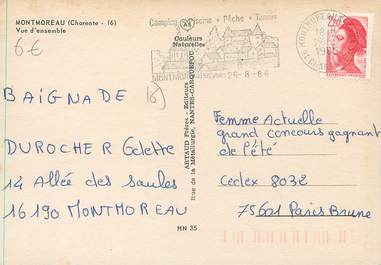 MONTMOREAU (Charente - 16)
Vue d'ensemble
6€
Couleurs
Naturelles
Camping Piscine - Pêche - Tennis
26-8-86
2,20
BAIGNADE
16
DUROCHER Colette
14 Allée des saules
16190 MONTMOREAU
ARTAUD Frères - Editeurs
Rue de la Métallurgie, NANTES-CARQUEFOU
HN 35
Femme Actuelle
grand concours gagnant
de l'été
Cedex 8032
75601 Paris Brune